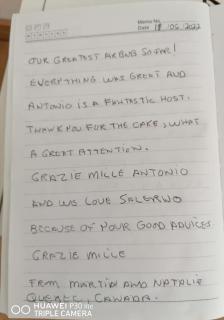 Memo No.
Date 18 / 05 / 2022
OUR GREATEST AIRBNB SO FAR!
EVERYTHING WAS GREAT AND
ANTONIO IS A FANTASTIC HOST.
THANK YOU FOR THE CAKE, WHAT
A GREAT ATTENTION.
GRAZIE MILLE ANTONIO
AND WE LOVE SALERNO
BECAUSE OF YOUR GOOD ADVICES
GRAZIE MILLE
FROM MARTIN AND NATALIE
QUEBEC, CANADA.
HUAWEI P30 lite
TRIPLE CAMERA